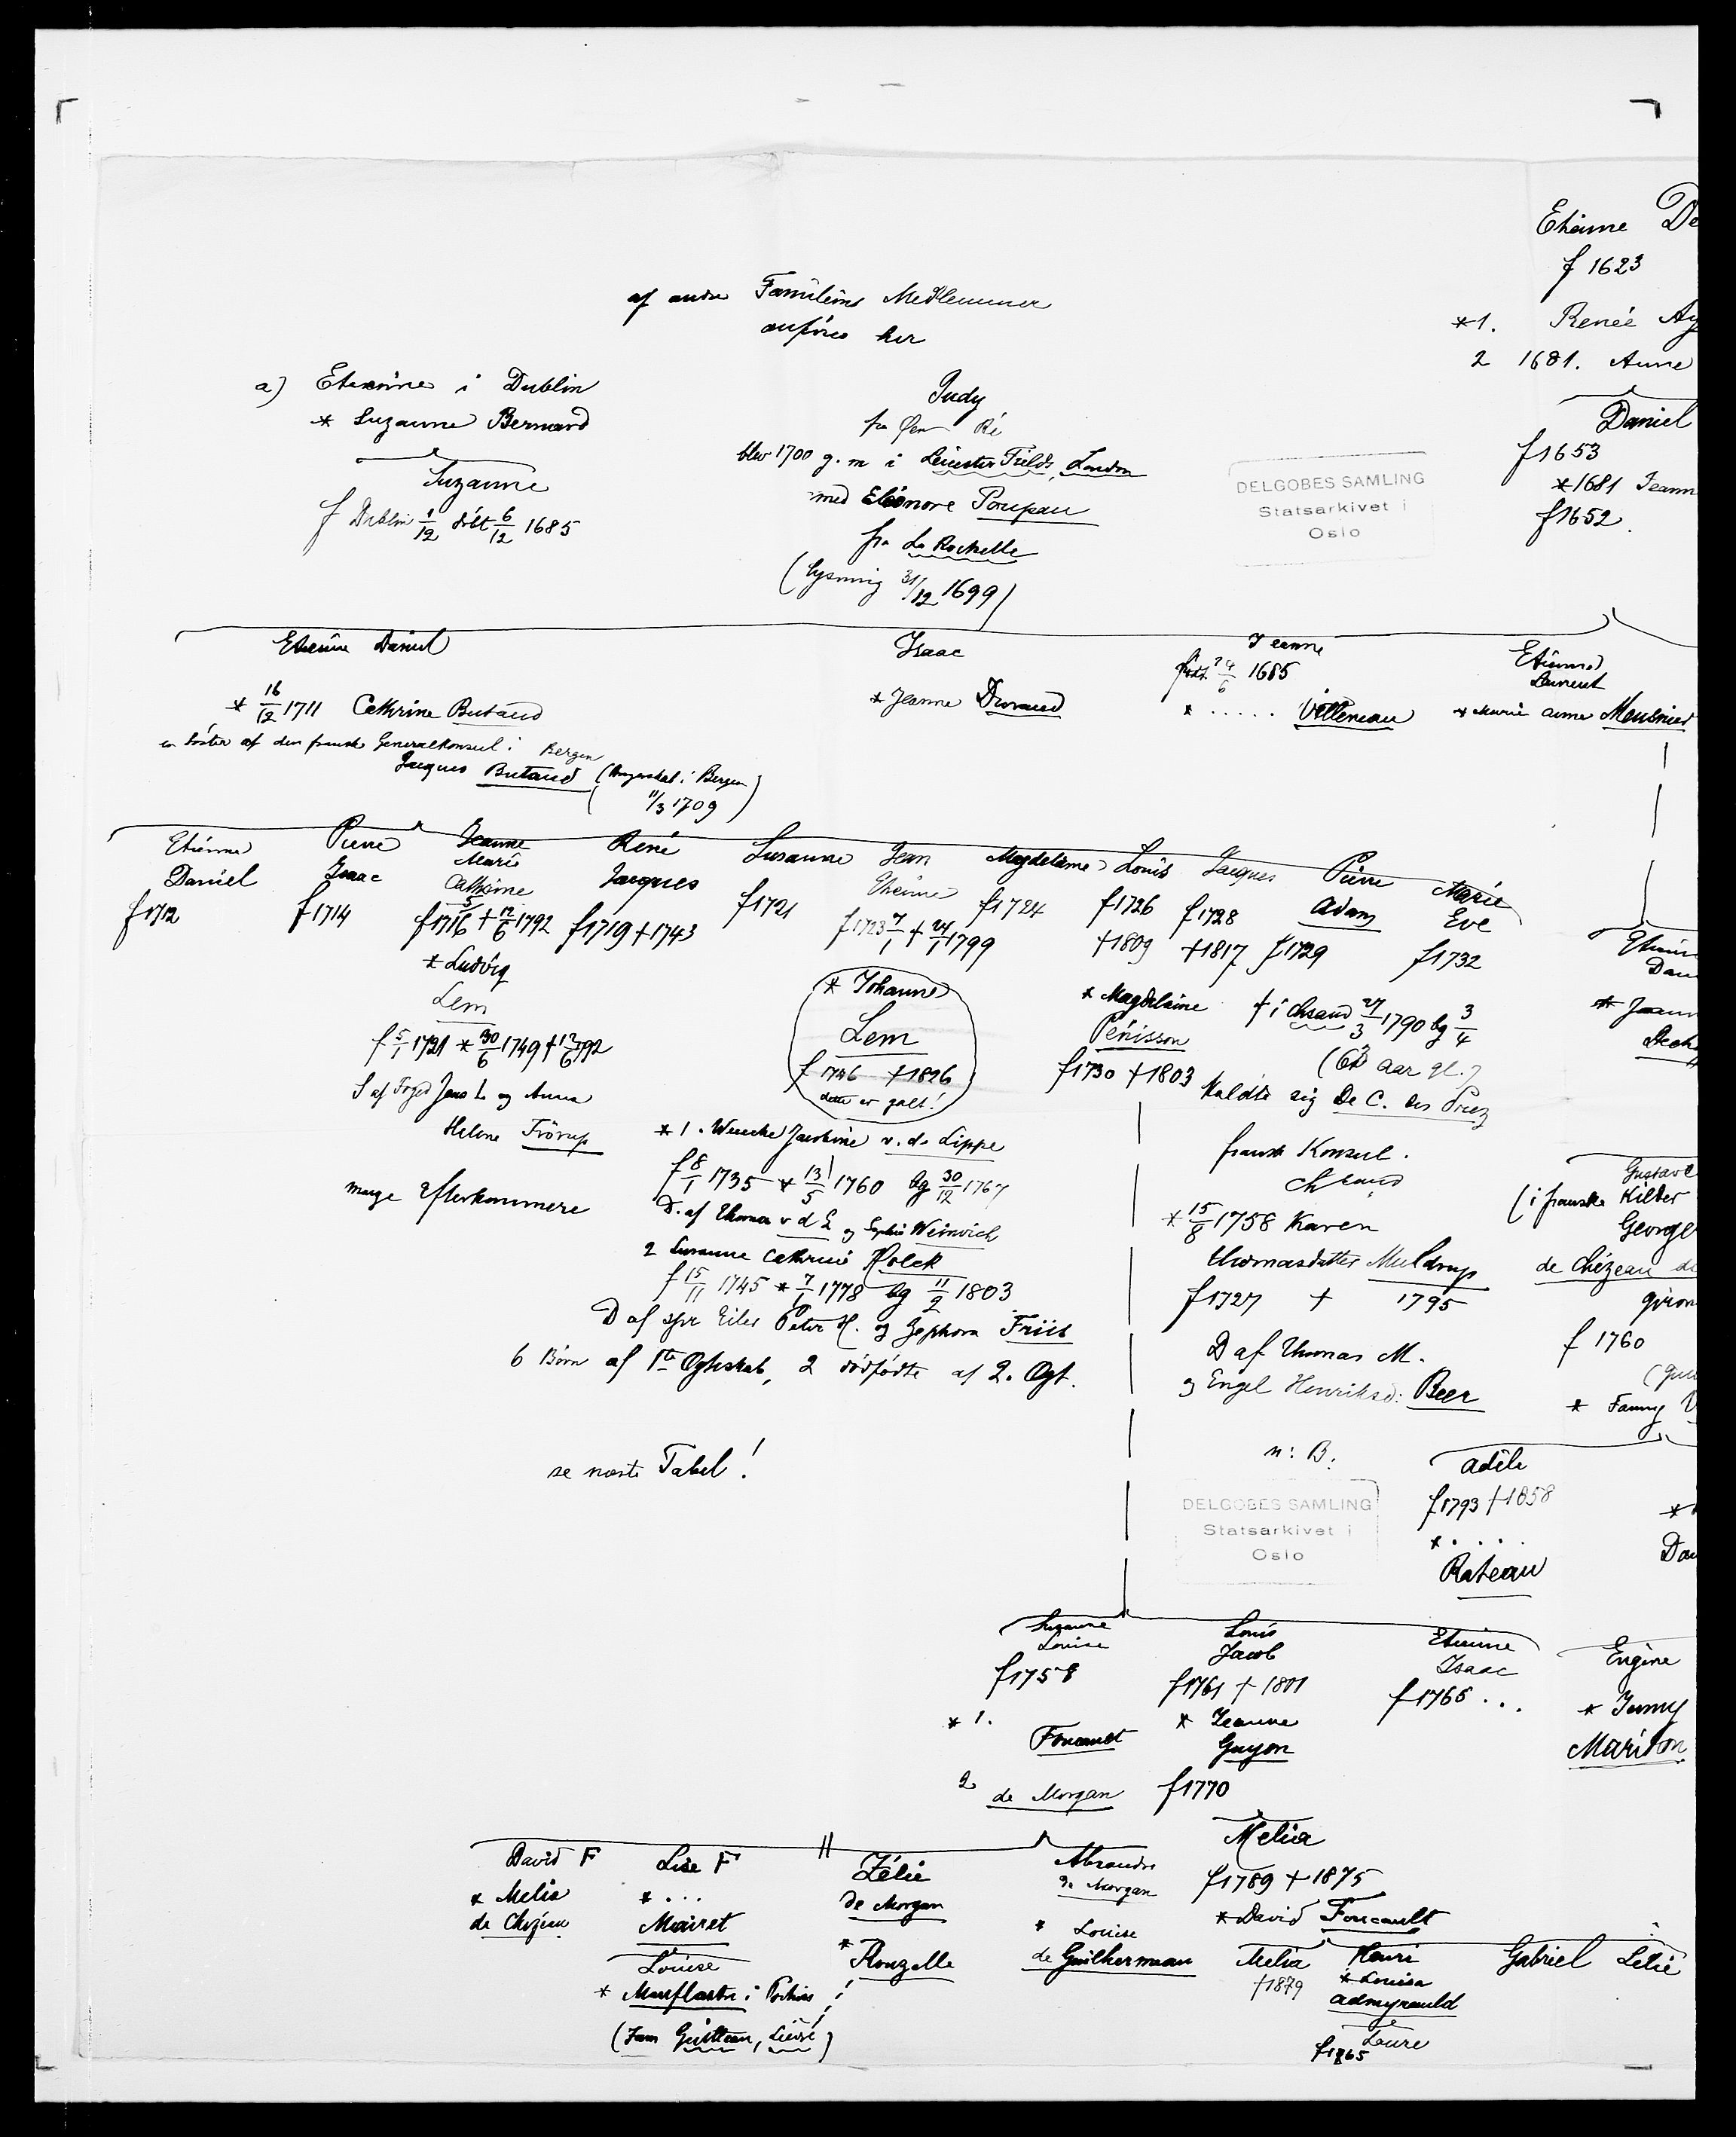 Etienne De
f 1623
*1. Renée Ay
2 1681. Anne
Daniel
f 1653
*1681 Jeann
f 1652.
af andre Familiens Medlemmer
anføres her
a) Etienne i Dublin
* Suzanne Bernard
Suzanne
f Dublin 1/12 døbt 6/12 1685
Judy
fra Øen Ré
blev 1700 g. m i Leicester Fields, London
med Eléonore Poupau
fra La Rochelle
(lysning 31/12 1699)
DELGOBES SAMLING
Statsarkivet i
Oslo
Etienne Daniel
* 16/12 1711 Cathrine Butaud
en Søster af den franske Generalkonsul i Bergen
Jacques Butaud (Borgerskab i Bergen
11/3 1709)
Isaac
* Jeanne Durand
Jeanne
1685
* ..... Villeneau
Etienne
Laurent
* Marie Anne Meusnier
Etienne
Daniel
f 1712
Pierre
Isaac
f 1714
Jeanne
Marie
Cathrine
f 1716 † 12/6 1792
* Ludvig
Lem
f 5/1 1721 * 30/6 1749 † 12/6 92
S af Foged Jens L. og Anna
Helene Frörup
mange Efterkommere
René
Jacques
f 1719 † 1743
Susanne
f 1721
Jean
Etienne
f 1723 7/1 † 24/1 1799
* Johanne
Lem
f 1746 † 1826
dette er galt!
* 1. Wencke Jacobine v. d. Lippe
f 8/1 1735 * 13/5 1760 bg 30/12 1767
D. af Thomas v d L og Sophie Weinwich
2 Susanne Cathrine Holck
f 15/11 1745 * 7/1 1778 bg 11/2 1803
D af spr Eiler Peter H. og Zephora Friis
6 Børn af 1ste Ægteskab, 2 dødfødte af 2. Ægt.
se næste Tabel!
Magdelaine
f 1724
Louis
f 1726
† 1809
* Magdelaine
Penisson
f 1730 † 1803
Jacques
f 1728
† 1817
Pierre
Adam
f 1729
† i Chsand 27/3 1790 bg 3/4
(62 Aar gl.)
kaldte sig De C. des Priez
fransk Konsul.
Chrsand
* 15/8 1758 Karen
Thomasdatter Muldrup
f 1727 † 1795
D af Thomas M.
og Engel Henriksd: Beer
n: B:
Marie
Eve
f 1732
Etienn
Dan
* Jeann
Dech
Gustave
(i franske Kilder
George
de Chézeau de
giron
f 1760
* Fanny V
Adèle
f 1793 † 1858
* . . . .
Rateau
*
Dau
DELGOBES SAMLING
Statsarkivet i
Oslo
Suzanne
Louise
f 1758
* 1.
Foucault
2. de Morgan
Louis
Jacob
f 1761 † 1801
* Jeanne
Guyon
f 1770
Etienne
Isaac
f 1765 ..
Eugène
* Jenny
Mariton
David F
* Melia
de Chézeau
Lise F
* ...
Mairet
Louise
* Monflastre i Poitiers !
(Fam Guitteau, Lièvre)
Zélie
de Morgan
*
Rouzelle
Alexandre
de Morgan
* Louise
de Guilhermeau
Melia
f 1789 † 1875
* David Foucault
Melia
† 1879
Henri
* Louisa
Admyrauld
Laure
f 1865
Gabriel
Lélie